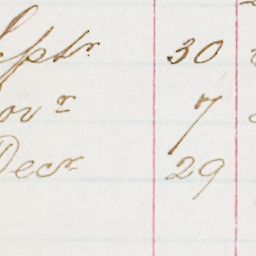 Septr 30
Novr 7
Decr 29